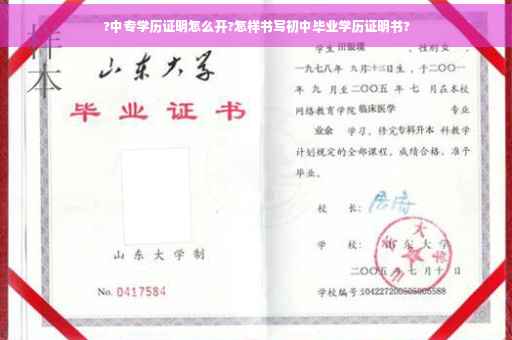 ?中专学历证明怎么开?怎样书写初中毕业学历证明书?
样本
山东大学
毕业证书
山东大学制
No. 0417584
学生 田银璞 ，性别 女 ，
一九七八年 九月十三日生，于二〇〇一
年 九 月至二〇〇五 年 七 月在本校
网络教育学院 临床医学 专业
业余 学习，修完专科升本 科教学
计划规定的全部课程，成绩合格，准予
毕业。
校 长：
学 校： 山东大学
二〇〇五 年 七 月 十 日
学校编号：104227200505005588